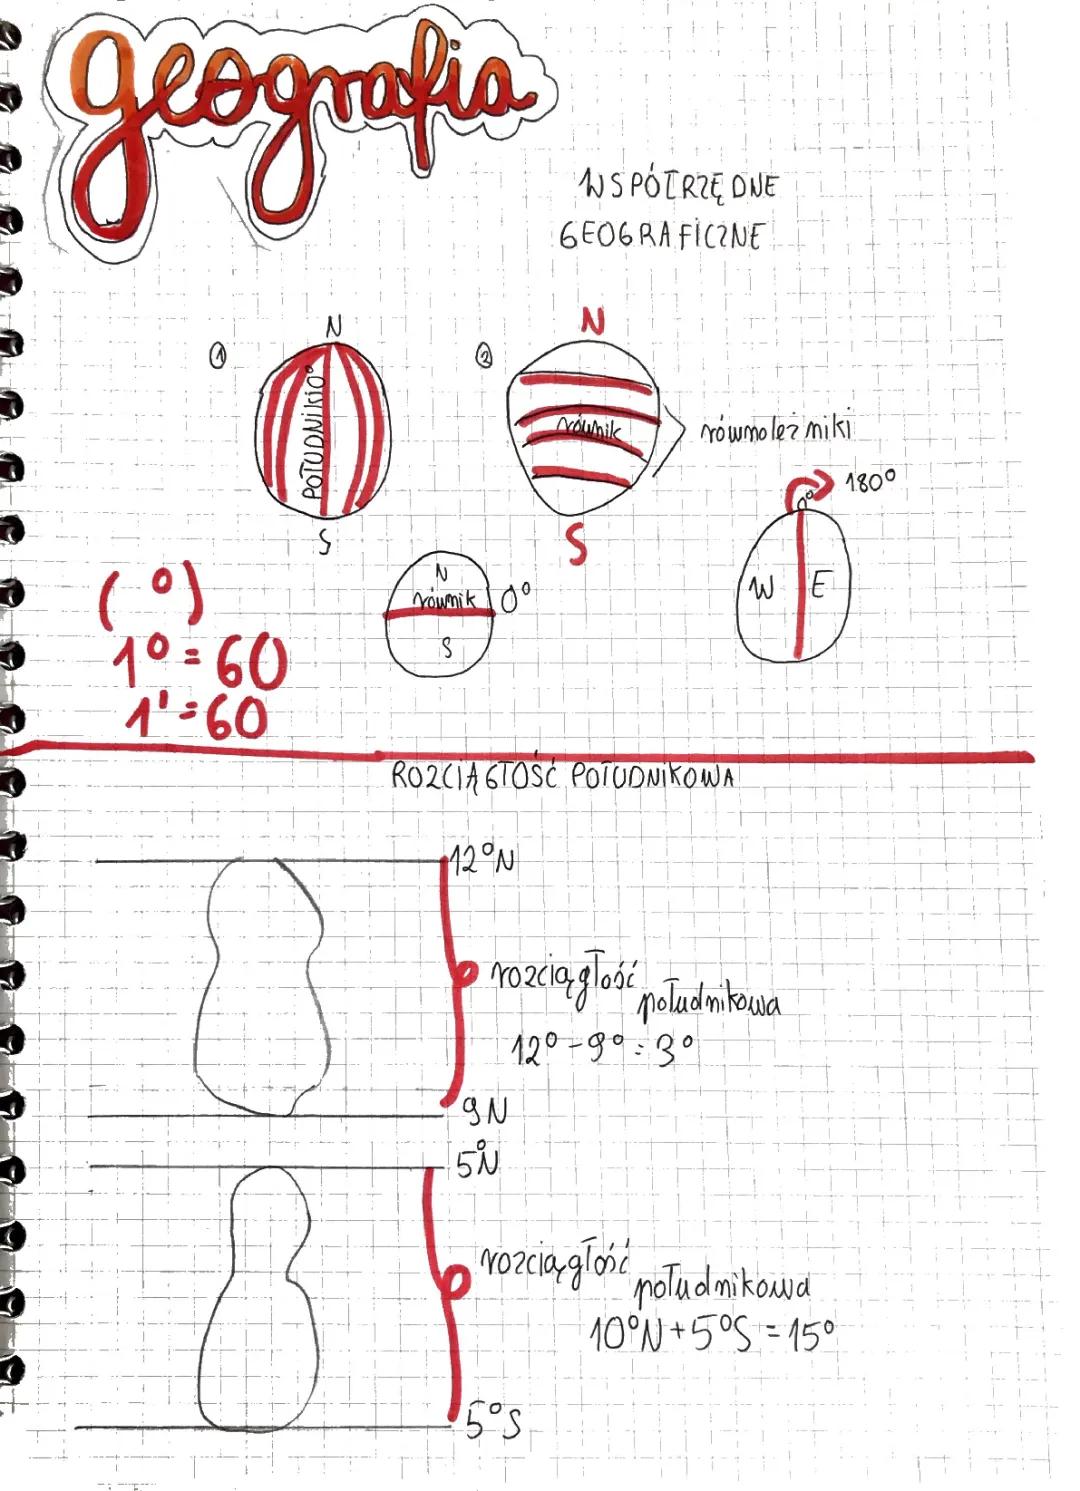 geografia
WSPÓŁRZĘDNE
GEOGRAFICZNE
① N
POŁUDNIKI 0°
S
② N
równik
S
równoleżniki
180°
0°
W E
N
równik 0°
S
(°)
1° = 60
1' = 60
ROZCIĄGŁOŚĆ POŁUDNIKOWA
12°N
rozciągłość
południkowa
12° - 9° = 3°
9N
5°N
rozciągłość
południkowa
10°N + 5°S = 15°
5°S